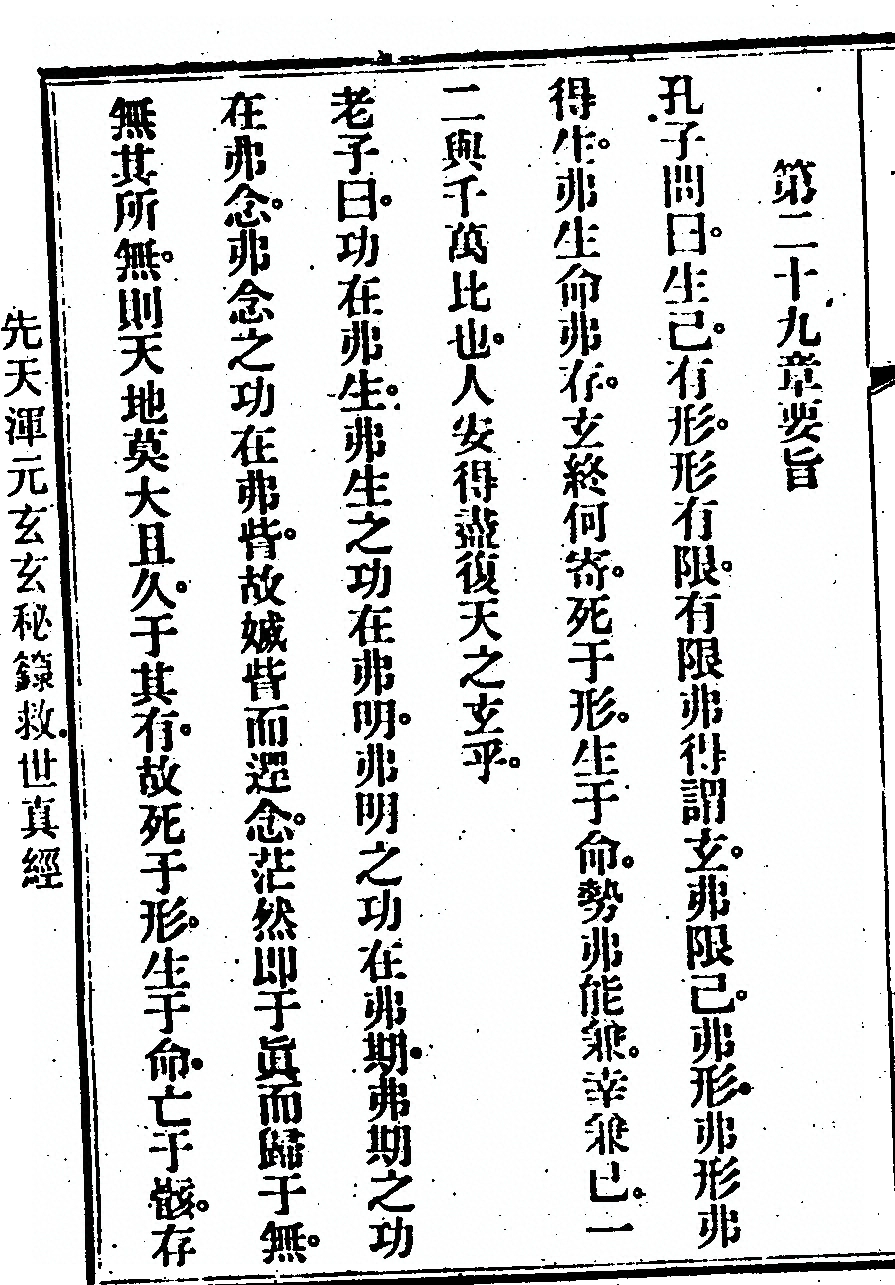 第二十九章要旨
孔子問曰。生己。有形。形有限。有限弗得謂玄。弗限己。弗形。弗形弗
得生。弗生命弗存。玄終何寄。死于形。生于命。勢弗能兼。幸兼已。一
二與千萬比也。人安得盡復天之玄乎。
老子曰。功在弗生。弗生之功在弗明。弗明之功在弗期。弗期之功
在弗念。弗念之功在弗訾。故媙訾而遝念。茫然即于眞而歸于無。
無其所無。則天地莫大且久。于其有。故死于形。生于命。亡于骸。存
先天渾元玄玄秘籙救世真經